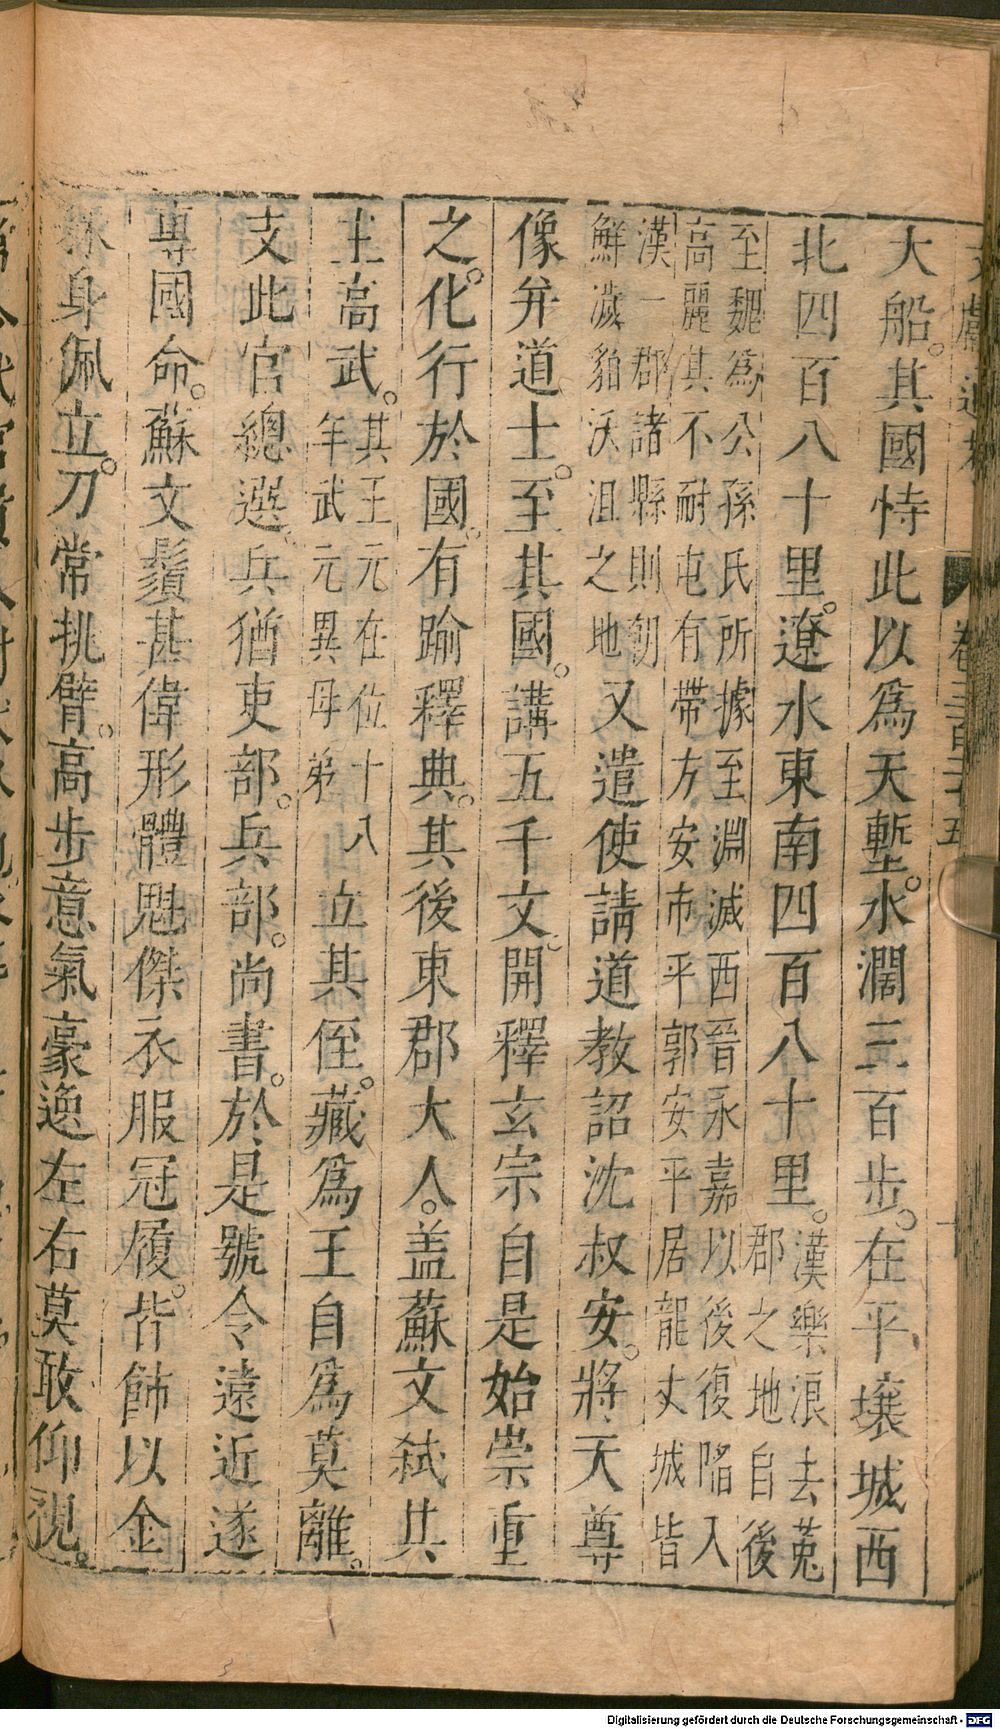 大船其國恃此以為天塹水濶三百步在平壤城西
北四百八十里遼水東南四百八十里漢樂浪去菟
郡之地自後
至魏為公孫氏所據至淵滅西晉永嘉以後復陷入
高麗其不耐屯有帶方安市平郭安平居龍丈城皆
漢一郡諸縣則朝
鮮濊貊沃沮之地又遣使請道教詔沈叔安將天尊
像弁道士至其國講五千文開釋玄宗自是始崇重
之化行於國有踰釋典其後東郡大人盖蘇文弒其
王高武其王元在位十八
年武元異母弟立其侄藏為王自為莫離
支此官總選兵猶吏部兵部尚書於是號令遠近遂
專國命蘇文鬚甚偉形體魁傑衣服冠履皆飾以金
身佩立刀常挑臂高步意氣豪逸左右莫敢仰視
Digitalisierung gefördert durch die Deutsche Forschungsgemeinschaft - DFG